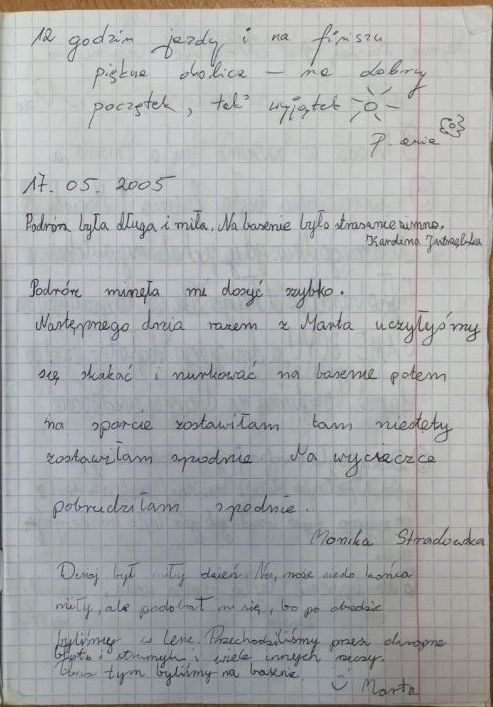 12 godzin jazdy i na finiszu
piękna okolica – na dobry
początek, tak wyjątek
P. ania
17. 05. 2005
Podróż była długa i miła. Na basenie było strasznie zimno.
Karolina Jastrzębska
Podróż minęła mi dosyć szybko.
Następnego dnia razem z Marta uczyłyśmy
się skakać i nurkować na basenie potem
na sporcie zostawiłam tam niestety
zostawiłam spodnie. Na wycieczce
pobrudziłam spodnie.
Monika Stradowska
Dzisiaj był miły dzień. No, może nie do końca
miły, ale podobał mi się, bo po obiedzie
byliśmy w lesie. Przechodziliśmy przez okropne
błoto i strumyk i wiele innych rzeczy.
tym byliśmy na basenie.
Marta